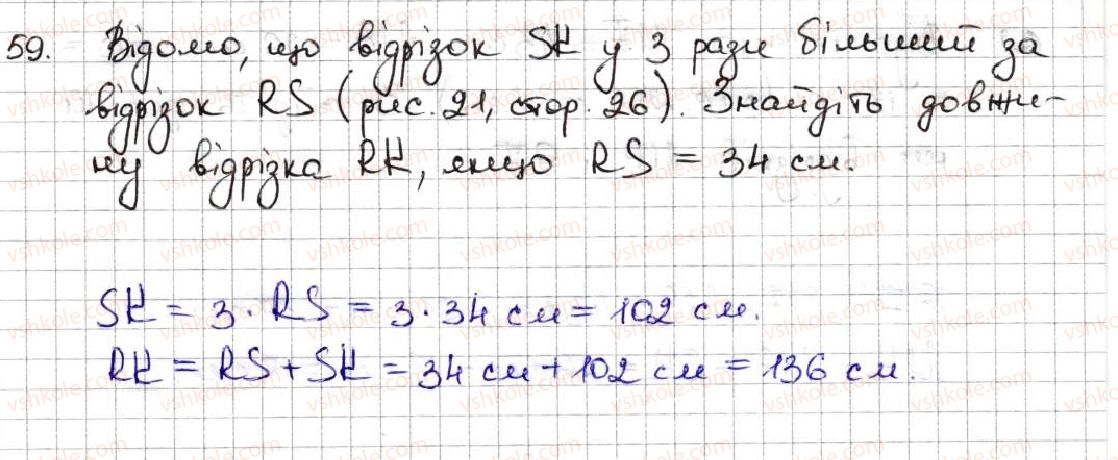 59. Відомо, що відрізок SK у 3 рази більший за
відрізок RS (рис. 21, стор. 26). Знайдіть довжи-
ну відрізка RK, якщо RS = 34 см.
SK = 3 · RS = 3 · 34 см = 102 см.
RK = RS + SK = 34 см + 102 см = 136 см.